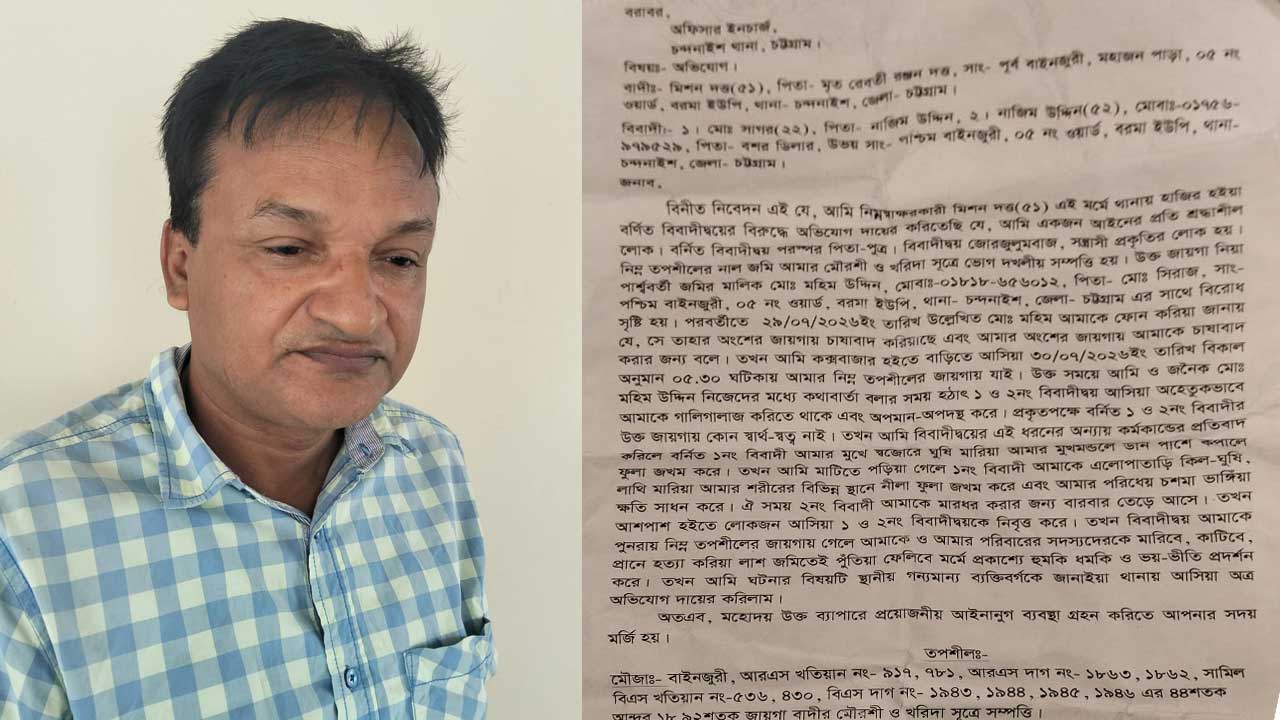 বরাবর,
অফিসার ইনচার্জ,
চন্দনাইশ থানা, চট্টগ্রাম।
বিষয়ঃ- অভিযোগ।
বাদীঃ- মিশন দত্ত(৫১), পিতা- মৃত রেবতী রঞ্জন দত্ত, সাং- পূর্ব বাইনজুরী, মহাজন পাড়া, ০৫ নং
ওয়ার্ড, বরমা ইউপি, থানা- চন্দনাইশ, জেলা- চট্টগ্রাম।
বিবাদী।- ১। মোঃ সাগর(২২), পিতা- নাজিম উদ্দিন, ২। নাজিম উদ্দিন(৫২), মোবাঃ-০১৭৫৬-
৯৭৯৫২৯, পিতা- বশর ডিলার, উভয় সাং- পশ্চিম বাইনজুরী, ০৫ নং ওয়ার্ড, বরমা ইউপি, থানা-
চন্দনাইশ, জেলা- চট্টগ্রাম।
জনাব,
বিনীত নিবেদন এই যে, আমি নিম্নস্বাক্ষরকারী মিশন দত্ত(৫১) এই মর্মে থানায় হাজির হইয়া
বর্ণিত বিবাদীদ্বয়ের বিরুদ্ধে অভিযোগ দায়ের করিতেছি যে, আমি একজন আইনের প্রতি শ্রদ্ধাশীল
লোক। বর্নিত বিবাদীদ্বয় পরস্পর পিতা-পুত্র। বিবাদীদ্বয় জোরজুলুমবাজ, সন্ত্রাসী প্রকৃতির লোক হয়।
নিম্ন তপশীলের নাল জমি আমার মৌরশী ও খরিদা সূত্রে ভোগ দখলীয় সম্পত্তি হয়। উক্ত জায়গা নিয়া
পার্শ্ববর্তী জমির মালিক মোঃ মহিম উদ্দিন, মোবাঃ-০১৮১৮-৬৫৬০১২, পিতা- মোঃ সিরাজ, সাং-
পশ্চিম বাইনজুরী, ০৫ নং ওয়ার্ড, বরমা ইউপি, থানা- চন্দনাইশ, জেলা- চট্টগ্রাম এর সাথে বিরোধ
সৃষ্টি হয়। পরবর্তীতে ২৯/০৭/২০২৬ইং তারিখ উল্লেখিত মোঃ মহিম আমাকে ফোন করিয়া জানায়
যে, সে তাহার অংশের জায়গায় চাষাবাদ করিয়াছে এবং আমার অংশের জায়গায় আমাকে চাষাবাদ
করার জন্য বলে। তখন আমি কক্সবাজার হইতে বাড়িতে আসিয়া ৩০/০৭/২০২৬ইং তারিখ বিকাল
অনুমান ০৫.৩০ ঘটিকায় আমার নিম্ন তপশীলের জায়গায় যাই। উক্ত সময়ে আমি ও জনৈক মোঃ
মহিম উদ্দিন নিজেদের মধ্যে কথাবার্তা বলার সময় হঠাৎ ১ ও ২নং বিবাদীদ্বয় আসিয়া অহেতুকভাবে
আমাকে গালিগালাজ করিতে থাকে এবং অপমান-অপদস্থ করে। প্রকৃতপক্ষে বর্নিত ১ ও ২নং বিবাদীর
উক্ত জায়গায় কোন স্বার্থ-স্বত্ব নাই। তখন আমি বিবাদীদ্বয়ের এই ধরনের অন্যায় কর্মকান্ডের প্রতিবাদ
করিলে বর্নিত ১নং বিবাদী আমার মুখে স্বজোরে ঘুষি মারিয়া আমার মুখমন্ডলে ডান পাশে কপালে
ফুলা জখম করে। তখন আমি মাটিতে পড়িয়া গেলে ১নং বিবাদী আমাকে এলোপাতাড়ি কিল-ঘুষি,
লাথি মারিয়া আমার শরীরের বিভিন্ন স্থানে নীলা ফুলা জখম করে এবং আমার পরিধেয় চশমা ভাঙ্গিয়া
ক্ষতি সাধন করে। ঐ সময় ২নং বিবাদী আমাকে মারধর করার জন্য বারবার তেড়ে আসে। তখন
আশপাশ হইতে লোকজন আসিয়া ১ ও ২নং বিবাদীদ্বয়কে নিবৃত্ত করে। তখন বিবাদীদ্বয় আমাকে
পুনরায় নিম্ন তপশীলের জায়গায় গেলে আমাকে ও আমার পরিবারের সদস্যদেরকে মারিবে, কাটিবে,
প্রানে হত্যা করিয়া লাশ জমিতেই পুঁতিয়া ফেলিবে মর্মে প্রকাশ্যে হুমকি ধমকি ও ভয়-ভীতি প্রদর্শন
করে। তখন আমি ঘটনার বিষয়টি স্থানীয় গন্যমান্য ব্যক্তিবর্গকে জানাইয়া থানায় আসিয়া অত্র
অভিযোগ দায়ের করিলাম।
অতএব, মহোদয় উক্ত ব্যাপারে প্রয়োজনীয় আইনানুগ ব্যবস্থা গ্রহন করিতে আপনার সদয়
মর্জি হয়।
তপশীলঃ-
মৌজাঃ- বাইনজুরী, আরএস খতিয়ান নং- ৯১৭, ৭৮১, আরএস দাগ নং- ১৮৬৩, ১৮৬২, সামিল
বিএস খতিয়ান নং-৫৩৬, ৪৩০, বিএস দাগ নং- ১৯৪৩, ১৯৪৪, ১৯৪৫, ১৯৪৬ এর ৪৪শতক
আন্দর ১৮.৯২শতক জায়গা বাদীর মৌরশী ও খরিদা সূত্রে সম্পত্তি।